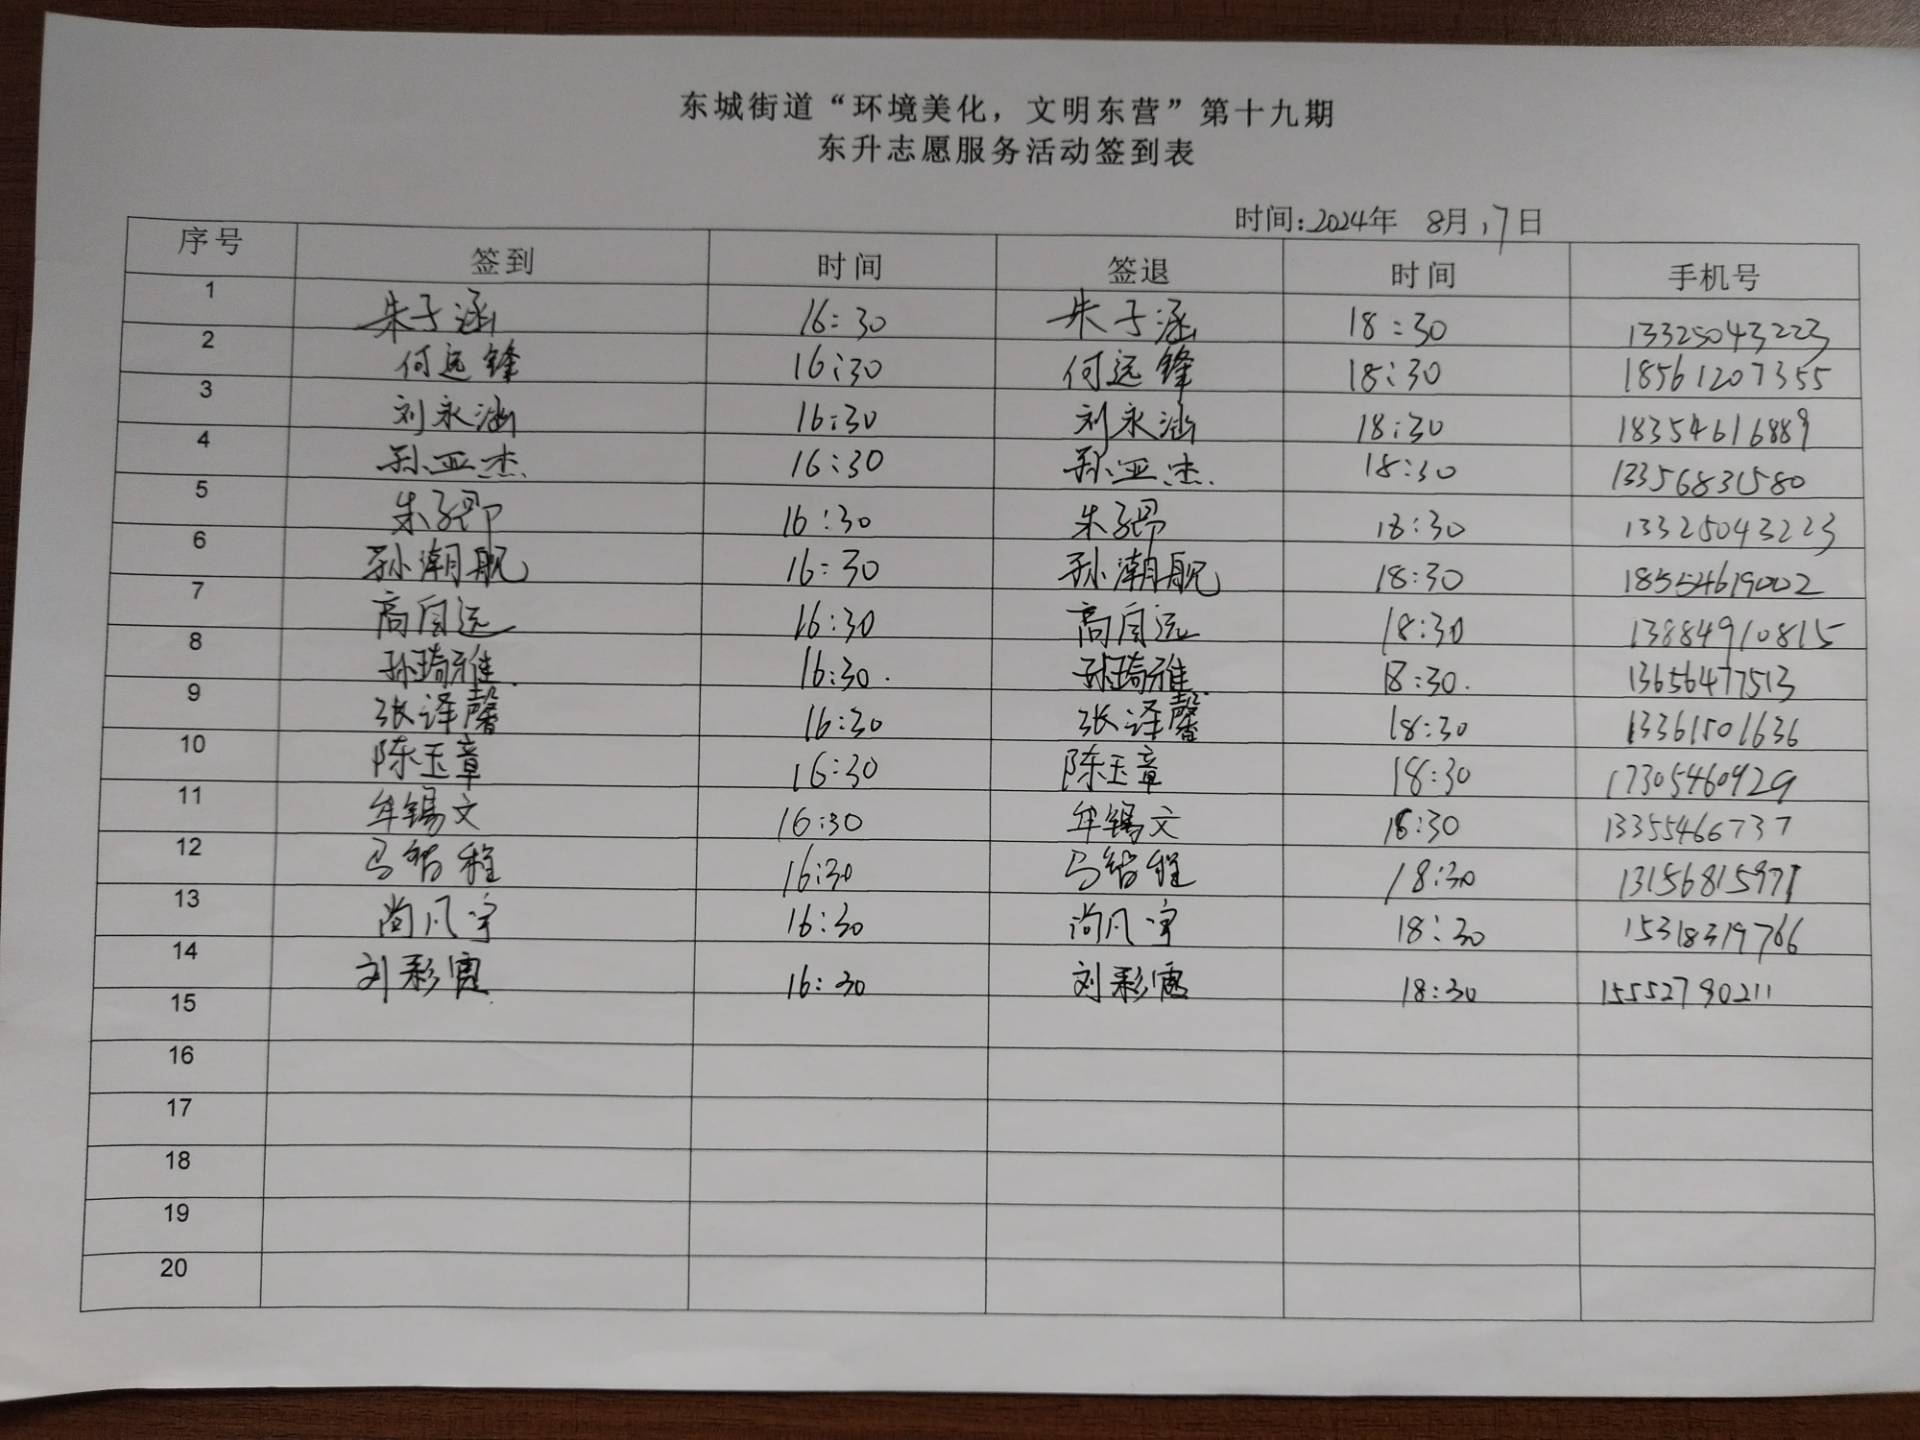 东城街道“环境美化，文明东营”第十九期
东升志愿服务活动签到表
时间：2024年 8月17日
序号 签到 时间 签退 时间 手机号
1 朱子涵 16:30 朱子涵 18:30 13325043223
2 何远锋 16:30 何远锋 18:30 18561207355
3 刘永涵 16:30 刘永涵 18:30 18354616889
4 孙亚杰 16:30 孙亚杰 18:30 13356831580
5 朱子昂 16:30 朱子昂 18:30 13325043223
6 孙潮舰 16:30 孙潮舰 18:30 18554619002
7 高自远 16:30 高自远 18:30 13884910815
8 孙琦雅 16:30 孙琦雅 18:30 13656477513
9 张译馨 16:30 张译馨 18:30 13361501636
10 陈玉章 16:30 陈玉章 18:30 17305460929
11 牟锡文 16:30 牟锡文 18:30 13355466737
12 马 程 16:30 马 程 18:30 13156815971
13 尚凡宇 16:30 尚凡宇 18:30 15318319766
14 刘彩霞 16:30 刘彩霞 18:30 15552790211
15
16
17
18
19
20